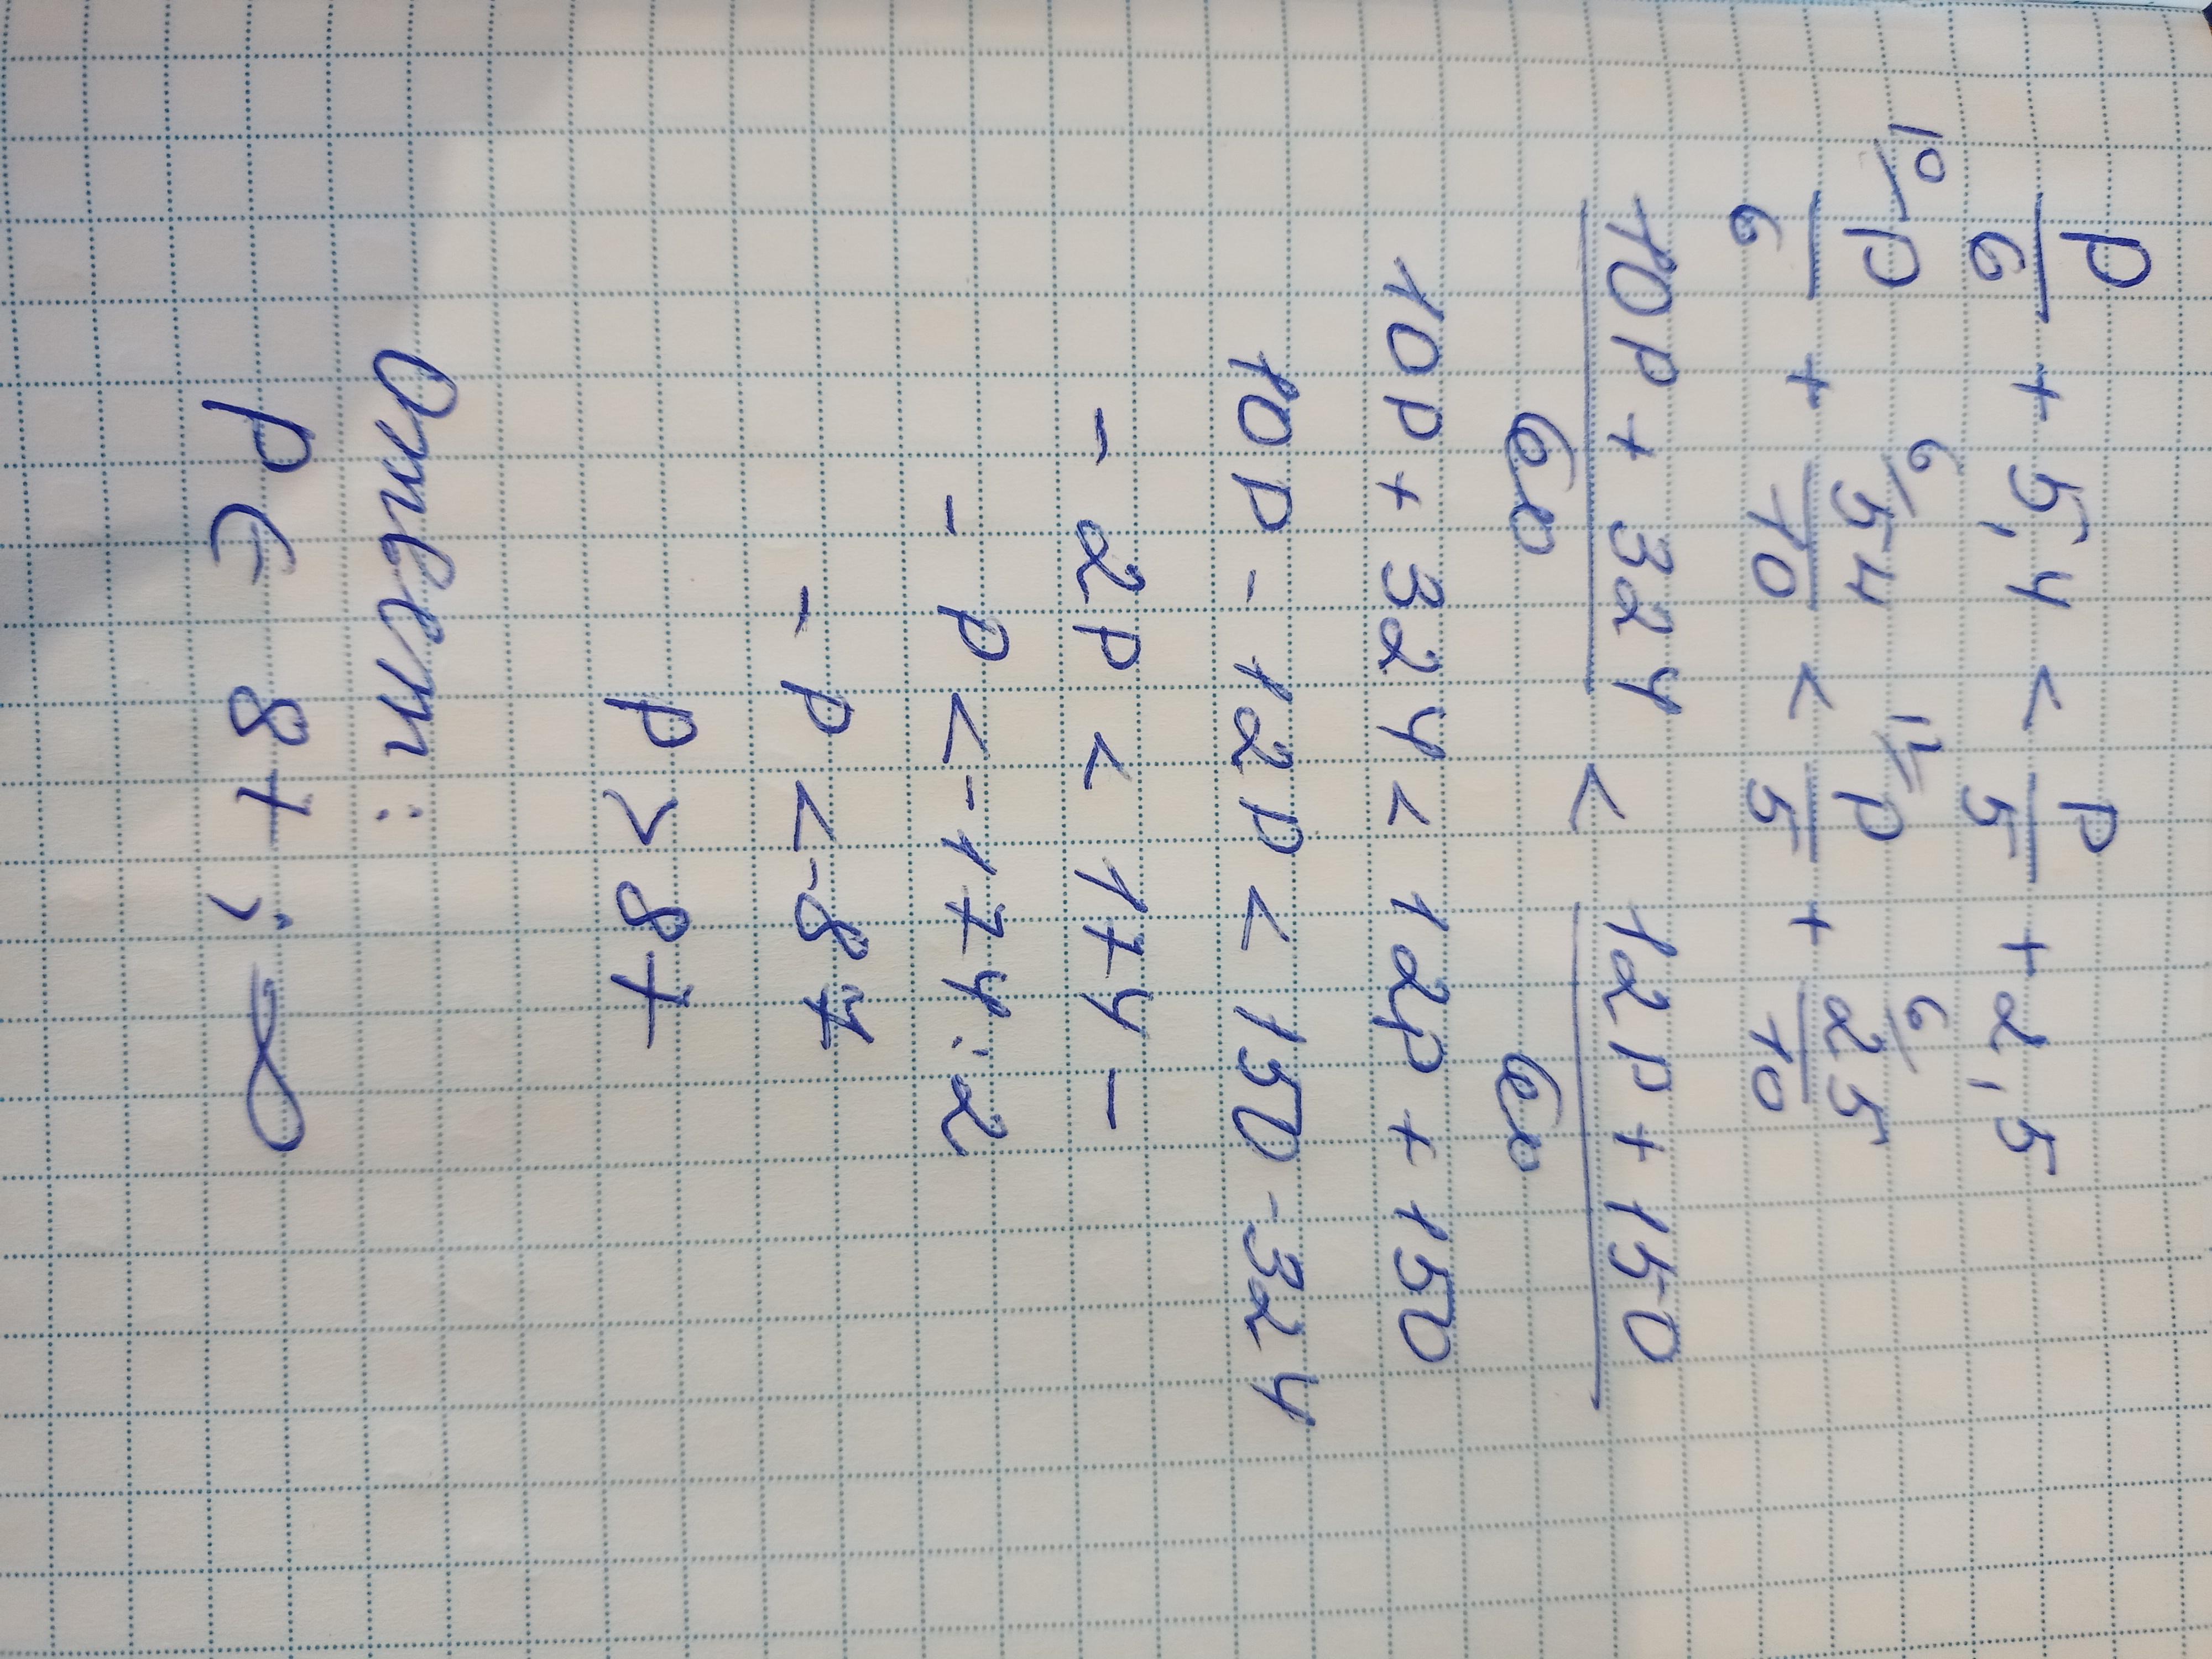 p/6 + 5,4 < p/5 + 2,5
10/ p/6 + 6/ 54/10 < 12/ p/5 + 6/ 25/10
10p + 324 / 60 < 12p + 150 / 60
10p + 324 < 12p + 150
10p - 12p < 150 - 324
- 2p < 174 -
- p < -174 : 2
- p < -87
p > 87
Ответ:
p ∈ 87 ; ∞